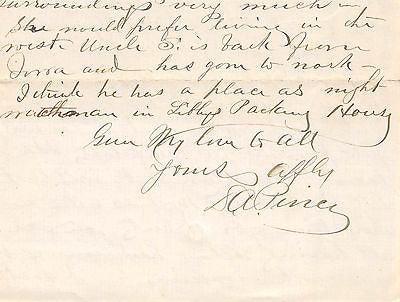 surroundings very much in
She would prefer living in the
west Uncle S. is back from
Iowa and has gone to work —
I think he has a place as night
watchman in Libbys Packing House
Give My love to all
Yours affly
S.A.